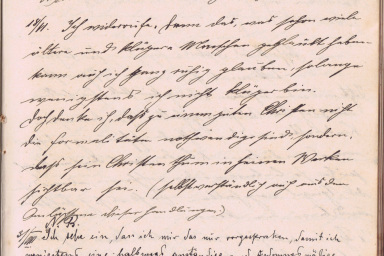 18/II. Ich widerrufe, denn das, was schon viele
ältere und klügere Menschen geglaubt haben
kann auch ich ganz ruhig glauben, solange
wenigstens ich nicht klüger bin.
Doch denke ich, daß zu einem guten Christen nicht
die Formalitäten nothwendig sind, sondern,
daß sein Christenthum in seinen Werken
sichtbar sei. (selbstverständlich auch aus dem
dieser Handlungen)
N.B.
31/III. Ich sehe ein, dass ich mir das nur vorgesprochen, damit ich
wenigstens eine halbwegs anständige und